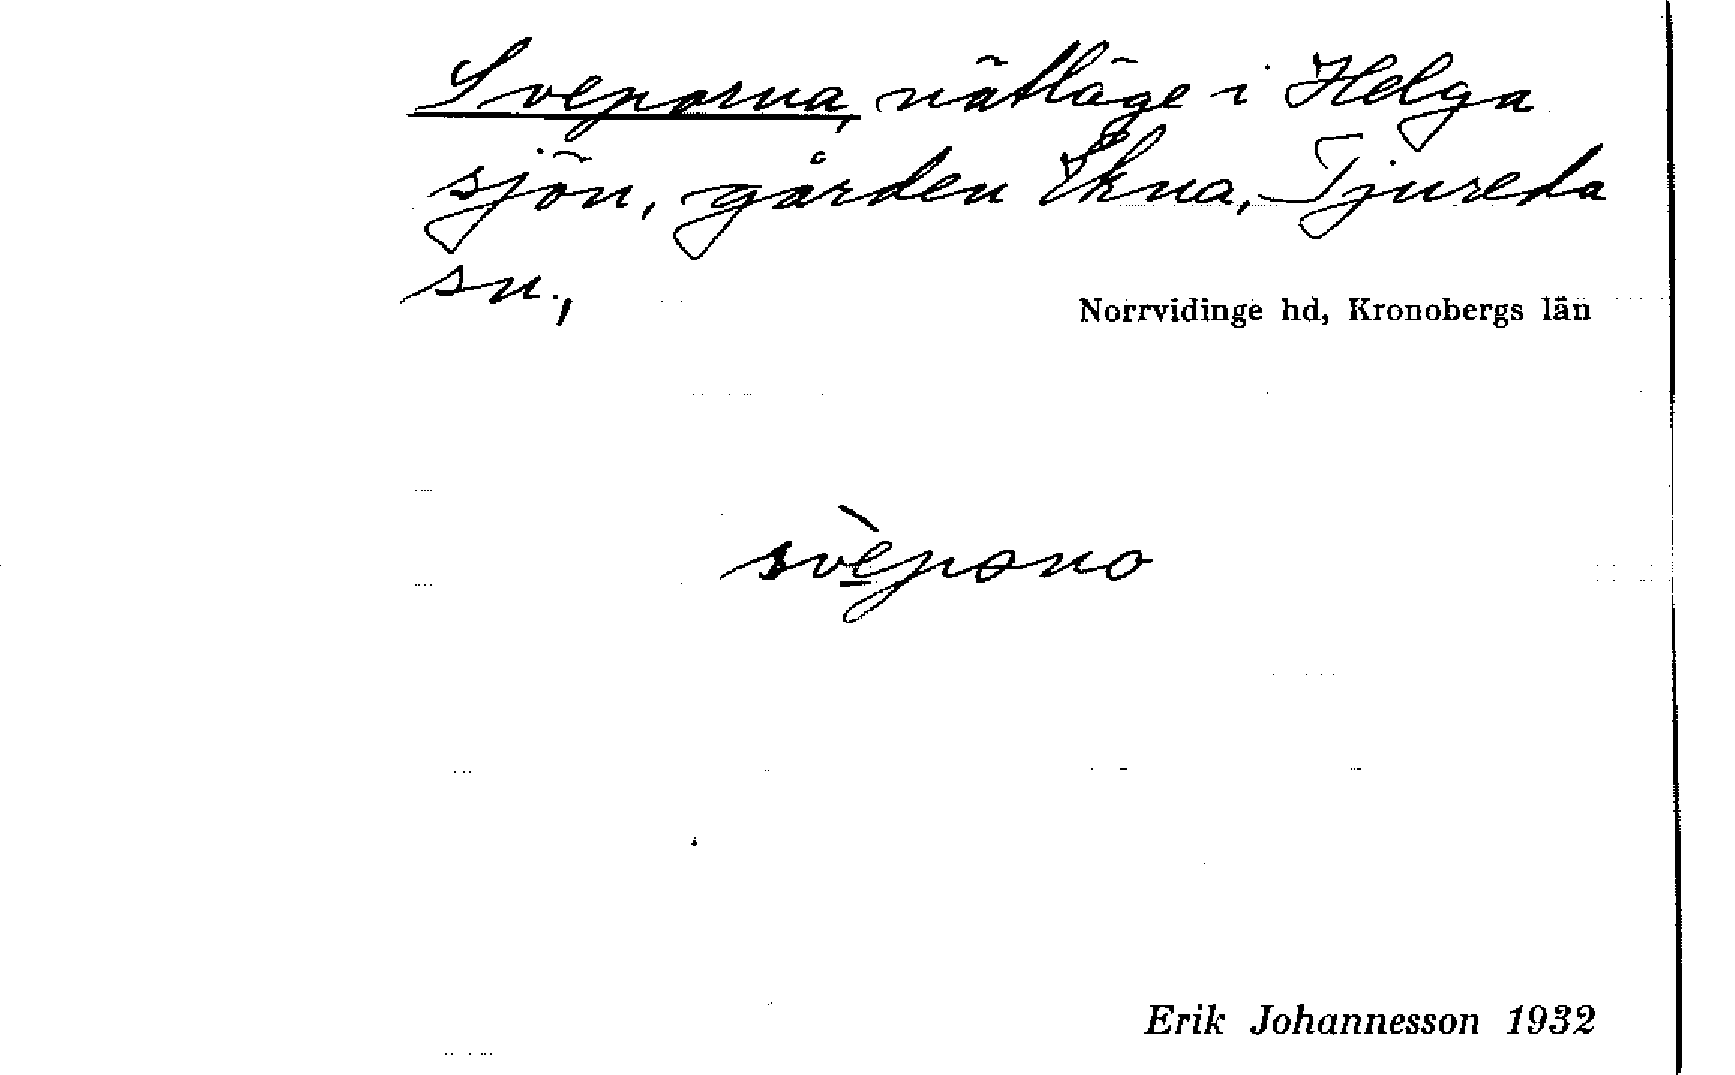 Sveporna, nätläge i Helga
sjön, gården Ekna, Tjureda
sn.,
Norrvidinge hd, Kronobergs län
svèpono
Erik Johannesson 1932